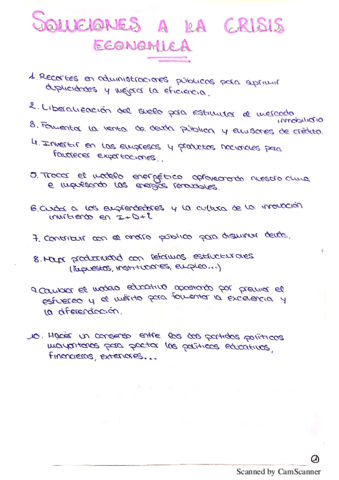 SOLUCIONES A LA CRISIS
ECONOMICA
1. Recortes en administraciones públicas para suprimir
duplicidades y mejorar la eficiencia.
2. Liberalización del suelo para estimular el mercado
inmobiliario
3. Fomentar la venta de deuda pública y emisores de crédito.
4. Invertir en las empresas y productos nacionales para
favorecer exportaciones.
5. Trazar el modelo energético aprovechando nuestro clima
e impulsando las energías renovables.
6. Cuidar a los emprendedores y la cultura de la innovación
invirtiendo en I+D+i
7. Contribuir con el ahorro público para disminuir deuda.
8. Mayor productividad con reformas estructurales
(impuestos, instituciones, empleo...)
9. Cambiar el modelo educativo apostando por premiar el
esfuerzo y el mérito para fomentar la excelencia y
la diferenciación.
10. Hacer un consenso entre los dos partidos políticos
mayoritarios para pactar las políticas educativas,
financieras, exteriores...
Scanned by CamScanner